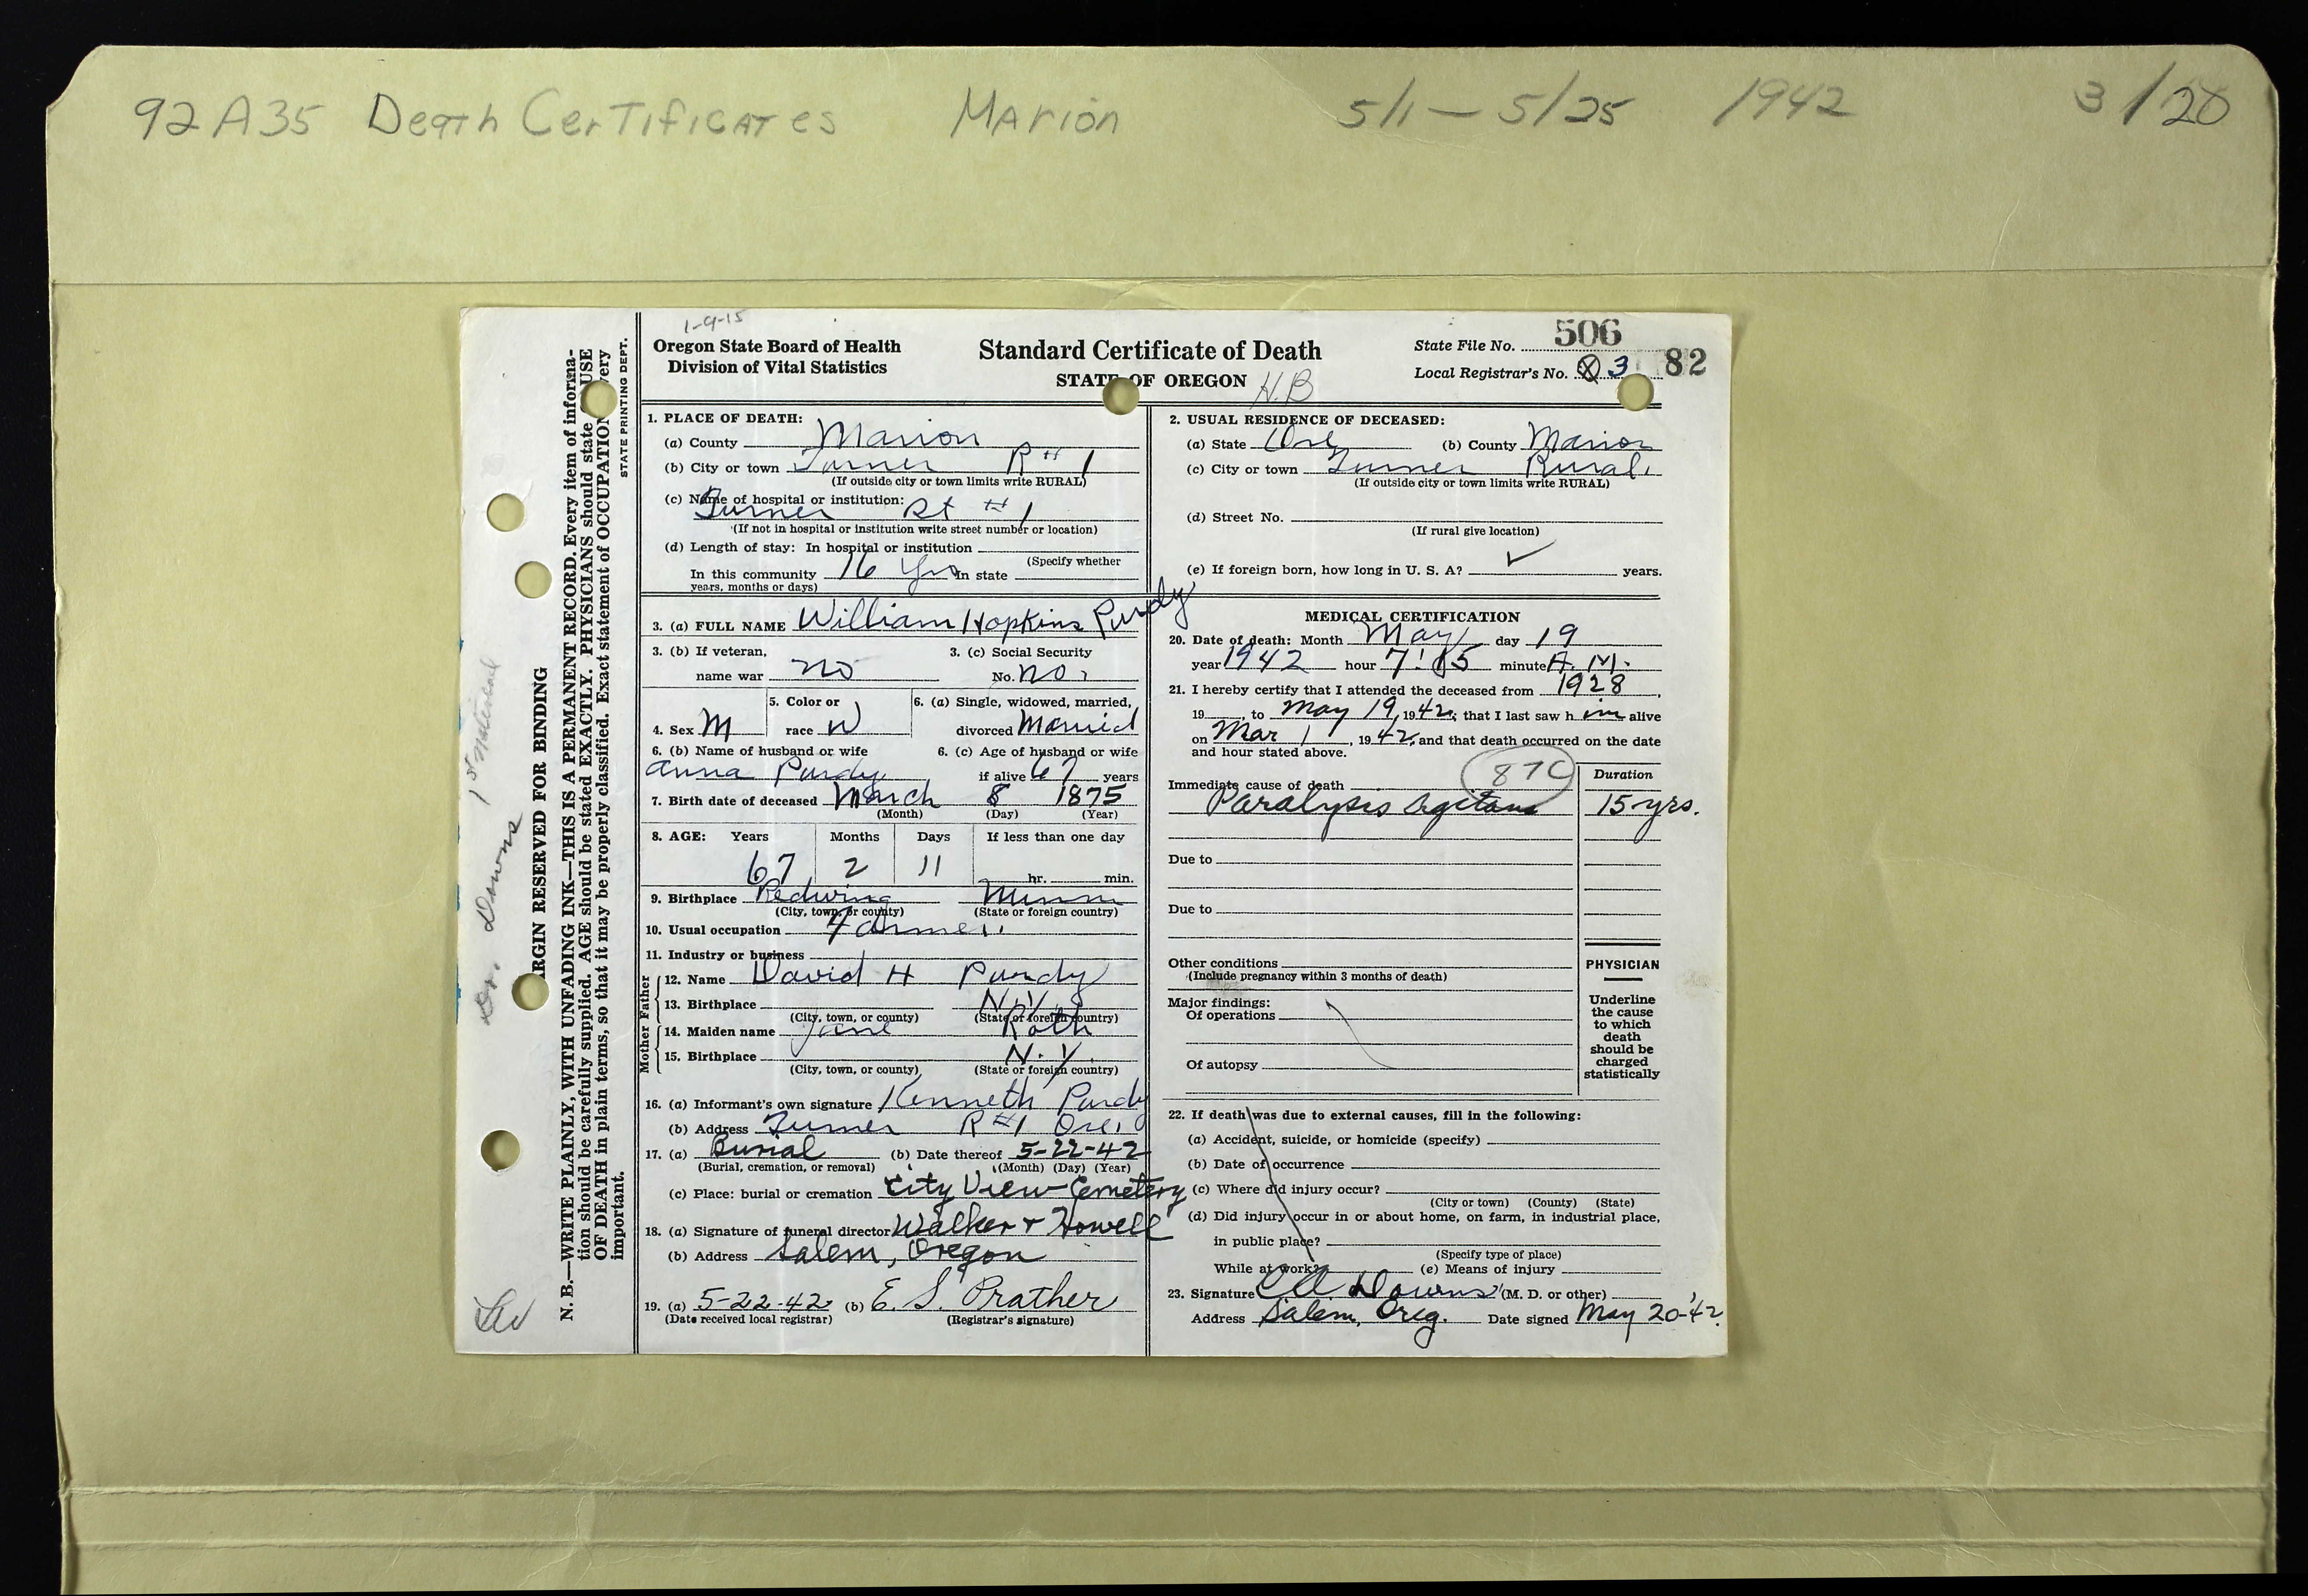 92A35 Death Certificates Marion 5/1 — 5/25 1942 3/20
1-9-15
Oregon State Board of Health
Division of Vital Statistics
Standard Certificate of Death
STATE OF OREGON
H.B
State File No. 506
Local Registrar's No. 3 82
1. PLACE OF DEATH:
(a) County Marion
(b) City or town Turner R#1
(If outside city or town limits write RURAL)
(c) Name of hospital or institution:
Turner Rt #1
(If not in hospital or institution write street number or location)
(d) Length of stay: In hospital or institution
(Specify whether
In this community 16 yrs In state
years, months or days)
2. USUAL RESIDENCE OF DECEASED:
(a) State Ore (b) County Marion
(c) City or town Turner Rural.
(If outside city or town limits write RURAL)
(d) Street No.
(If rural give location)
(e) If foreign born, how long in U. S. A.? years.
3. (a) FULL NAME William Hopkins Purdy
3. (b) If veteran, 3. (c) Social Security
name war no No. no.
4. Sex M 5. Color or race W 6. (a) Single, widowed, married, divorced Married
6. (b) Name of husband or wife 6. (c) Age of husband or wife
Anna Purdy if alive 67 years
7. Birth date of deceased March 8 1875
(Month) (Day) (Year)
8. AGE: Years Months Days If less than one day
67 2 11 hr. min.
9. Birthplace Redwing Minn
(City, town, or county) (State or foreign country)
10. Usual occupation Farmer.
11. Industry or business
Father
12. Name David H Purdy
13. Birthplace N.Y.
(City, town, or county) (State or foreign country)
Mother
14. Maiden name Jane Roth
15. Birthplace N.Y.
(City, town, or county) (State or foreign country)
16. (a) Informant's own signature Kenneth Purdy
(b) Address Turner R#1 Ore.
17. (a) Burial (b) Date thereof 5-22-42
(Burial, cremation, or removal) (Month) (Day) (Year)
(c) Place: burial or cremation City View Cemetery
18. (a) Signature of funeral director Walker & Howell
(b) Address Salem, Oregon
19. (a) 5-22-42 (b) E. S. Prather
(Date received local registrar) (Registrar's signature)
MEDICAL CERTIFICATION
20. Date of death: Month May day 19
year 1942 hour 7:15 minute A.M.
21. I hereby certify that I attended the deceased from 1928,
19 , to May 19, 1942; that I last saw him alive
on Mar 1, 1942, and that death occurred on the date
and hour stated above.
87C
Duration
Immediate cause of death
Paralysis Agitans 15 yrs.
Due to
Due to
Other conditions
(Include pregnancy within 3 months of death)
Major findings:
Of operations
Of autopsy
PHYSICIAN
Underline
the cause
to which
death
should be
charged
statistically
22. If death was due to external causes, fill in the following:
(a) Accident, suicide, or homicide (specify)
(b) Date of occurrence
(c) Where did injury occur?
(City or town) (County) (State)
(d) Did injury occur in or about home, on farm, in industrial place,
in public place?
(Specify type of place)
While at work? (e) Means of injury
23. Signature Downs (M. D. or other)
Address Salem, Oreg. Date signed May 20-'42
Dr. Downs
ARGIN RESERVED FOR BINDING
N. B.—WRITE PLAINLY, WITH UNFADING INK—THIS IS A PERMANENT RECORD. Every item of informa-
tion should be carefully supplied. AGE should be stated EXACTLY. PHYSICIANS should state USE
OF DEATH in plain terms, so that it may be properly classified. Exact statement of OCCUPATION very
important.
STATE PRINTING DEPT.